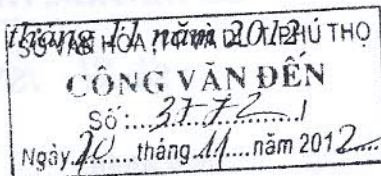 tháng 11 năm 2012
SỞ VĂN HÓA, TT VÀ DL T.PHÚ THỌ
CÔNG VĂN ĐẾN
Số:...3772.../
Ngày 20 tháng 11 năm 2012